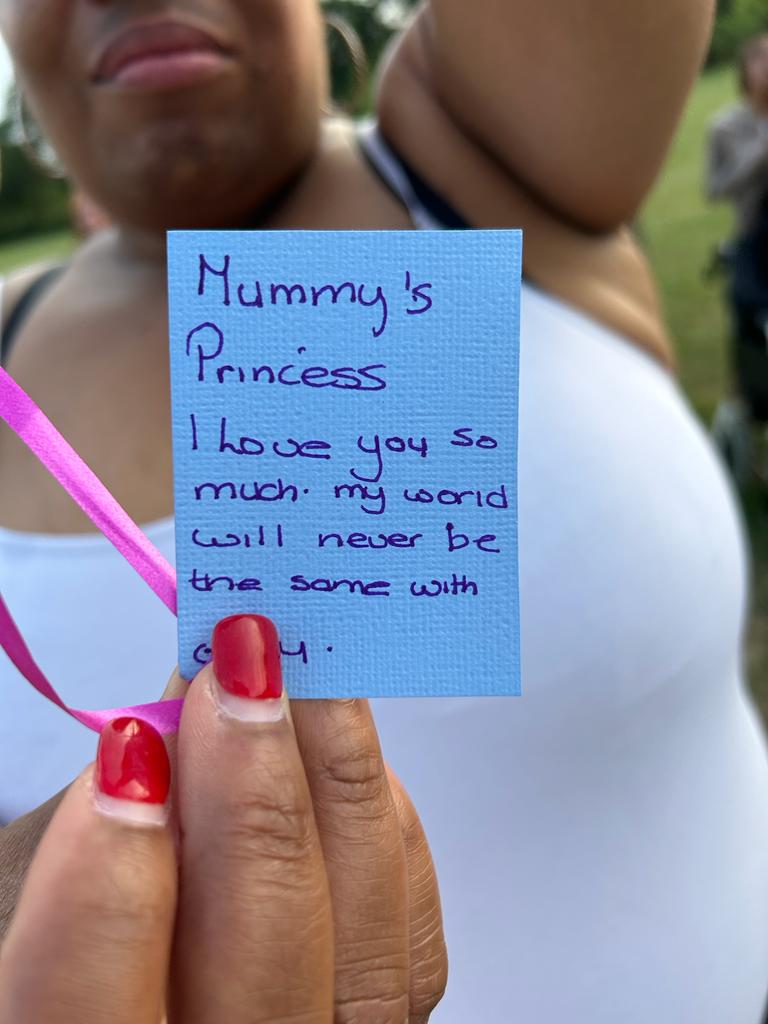 Mummy's
Princess
I Love you so
much. my world
will never be
the same with